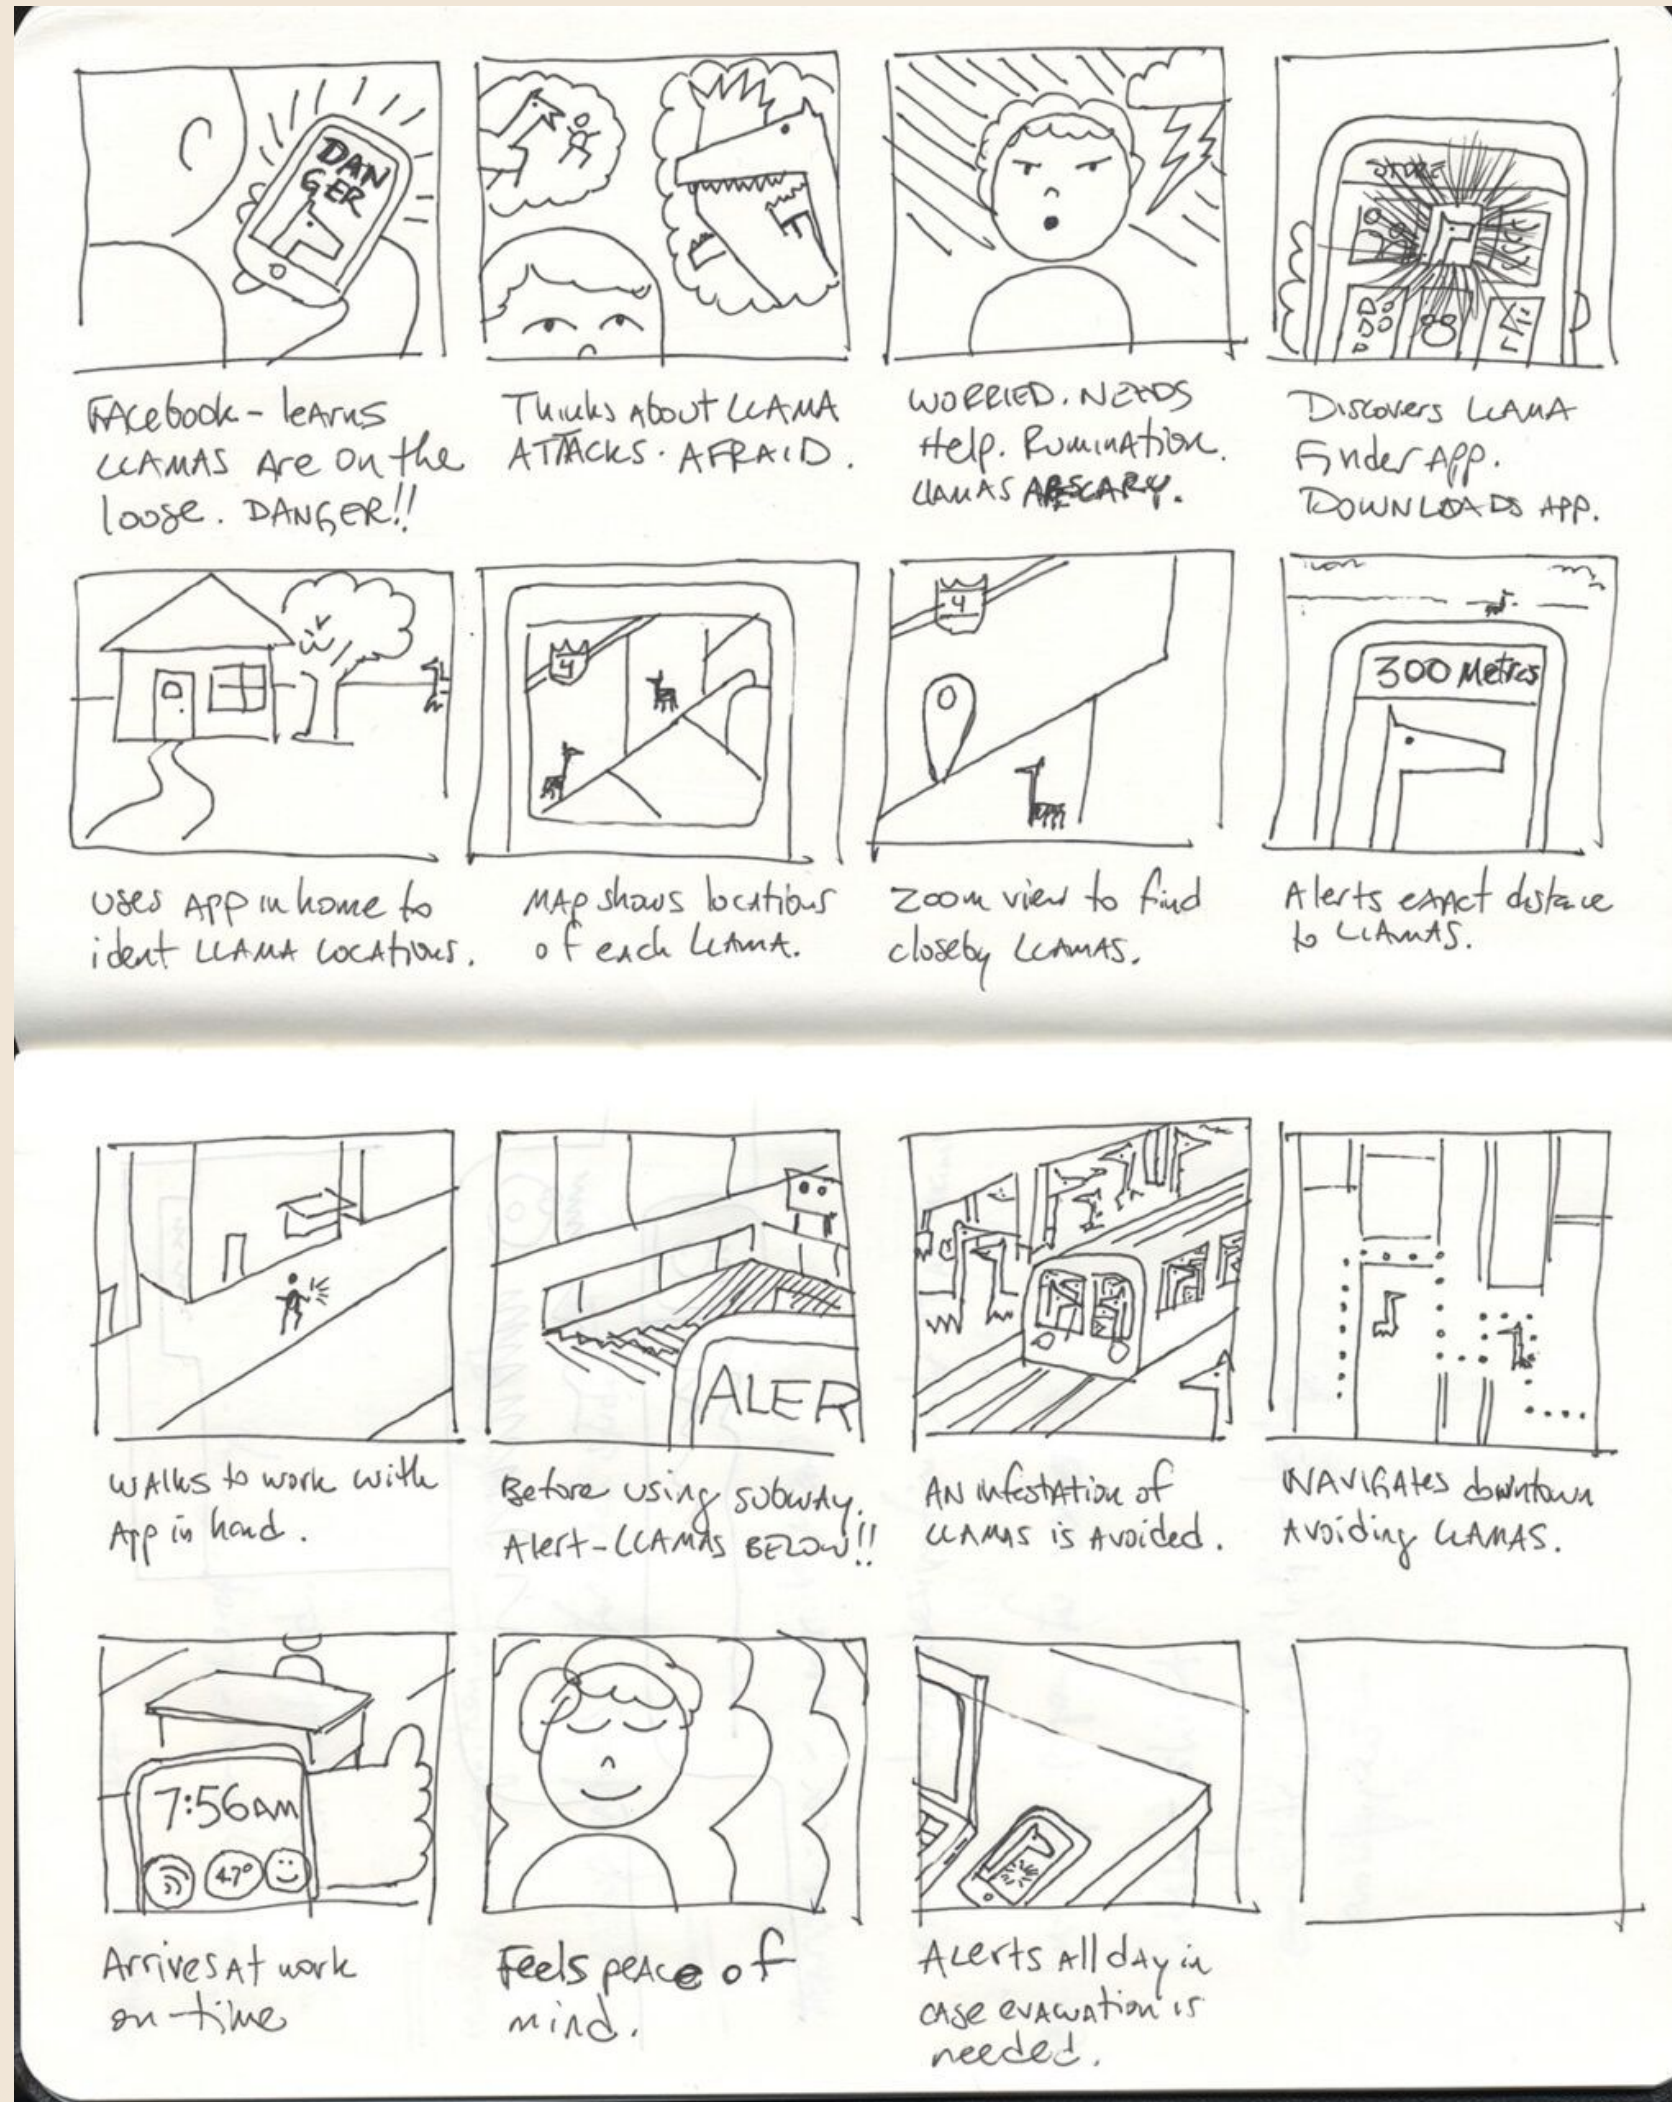 DAN
GER
STORE
FACebook - leArns
LLAMAS Are on the
loose. DANGER!!
Thinks About LLAMA
ATTACKS. AFRAID.
WORRIED. NEEDS
Help. Rumination.
LLAMAS ARE SCARY.
Discovers LLAMA
Finder App.
DOWNLOADS APP.
4
4
300 Metres
Uses App in home to
ident LLAMA LOCAtions.
MAp shows locAtions
of eAch LLAMA.
Zoom view to find
closeby LLAMAS.
Alerts exAct distance
to LLAMAS.
ALER
WAlks to work with
App in hand.
Before using subwAy.
Alert - LLAMAS BELOW!!
AN infestAtion of
LLAMAS is Avoided.
NAVIGAtes downtown
Avoiding LLAMAS.
7:56AM
47°
Arrives At work
on-time
Feels peAce of
mind.
ALerts All dAy in
cAse evAcuAtion is
needed.